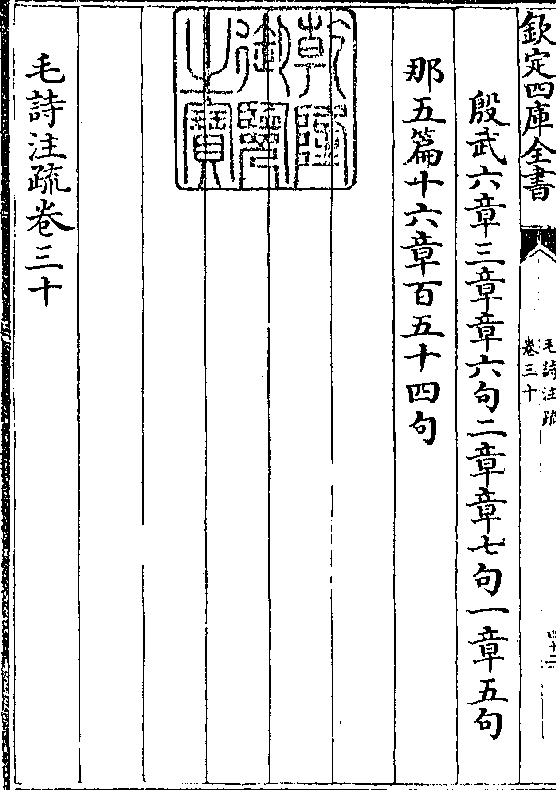 欽定四庫全書
毛詩注疏
卷三十
殷武六章三章章六句二章章七句一章五句
那五篇十六章百五十四句
乾隆御覽之寶
毛詩注疏卷三十